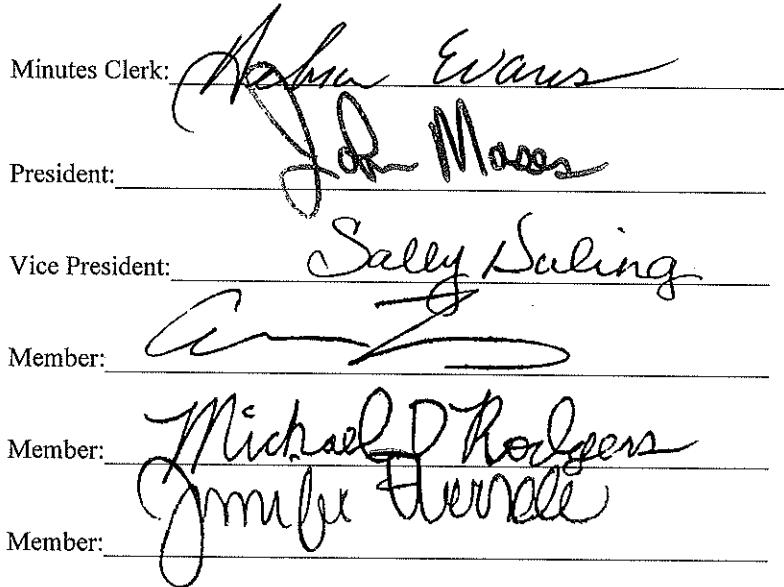 Minutes Clerk: Evans
President: John Moses
Vice President: Sally
Member:
Member: Michael D Rodgers
Member: Jennifer